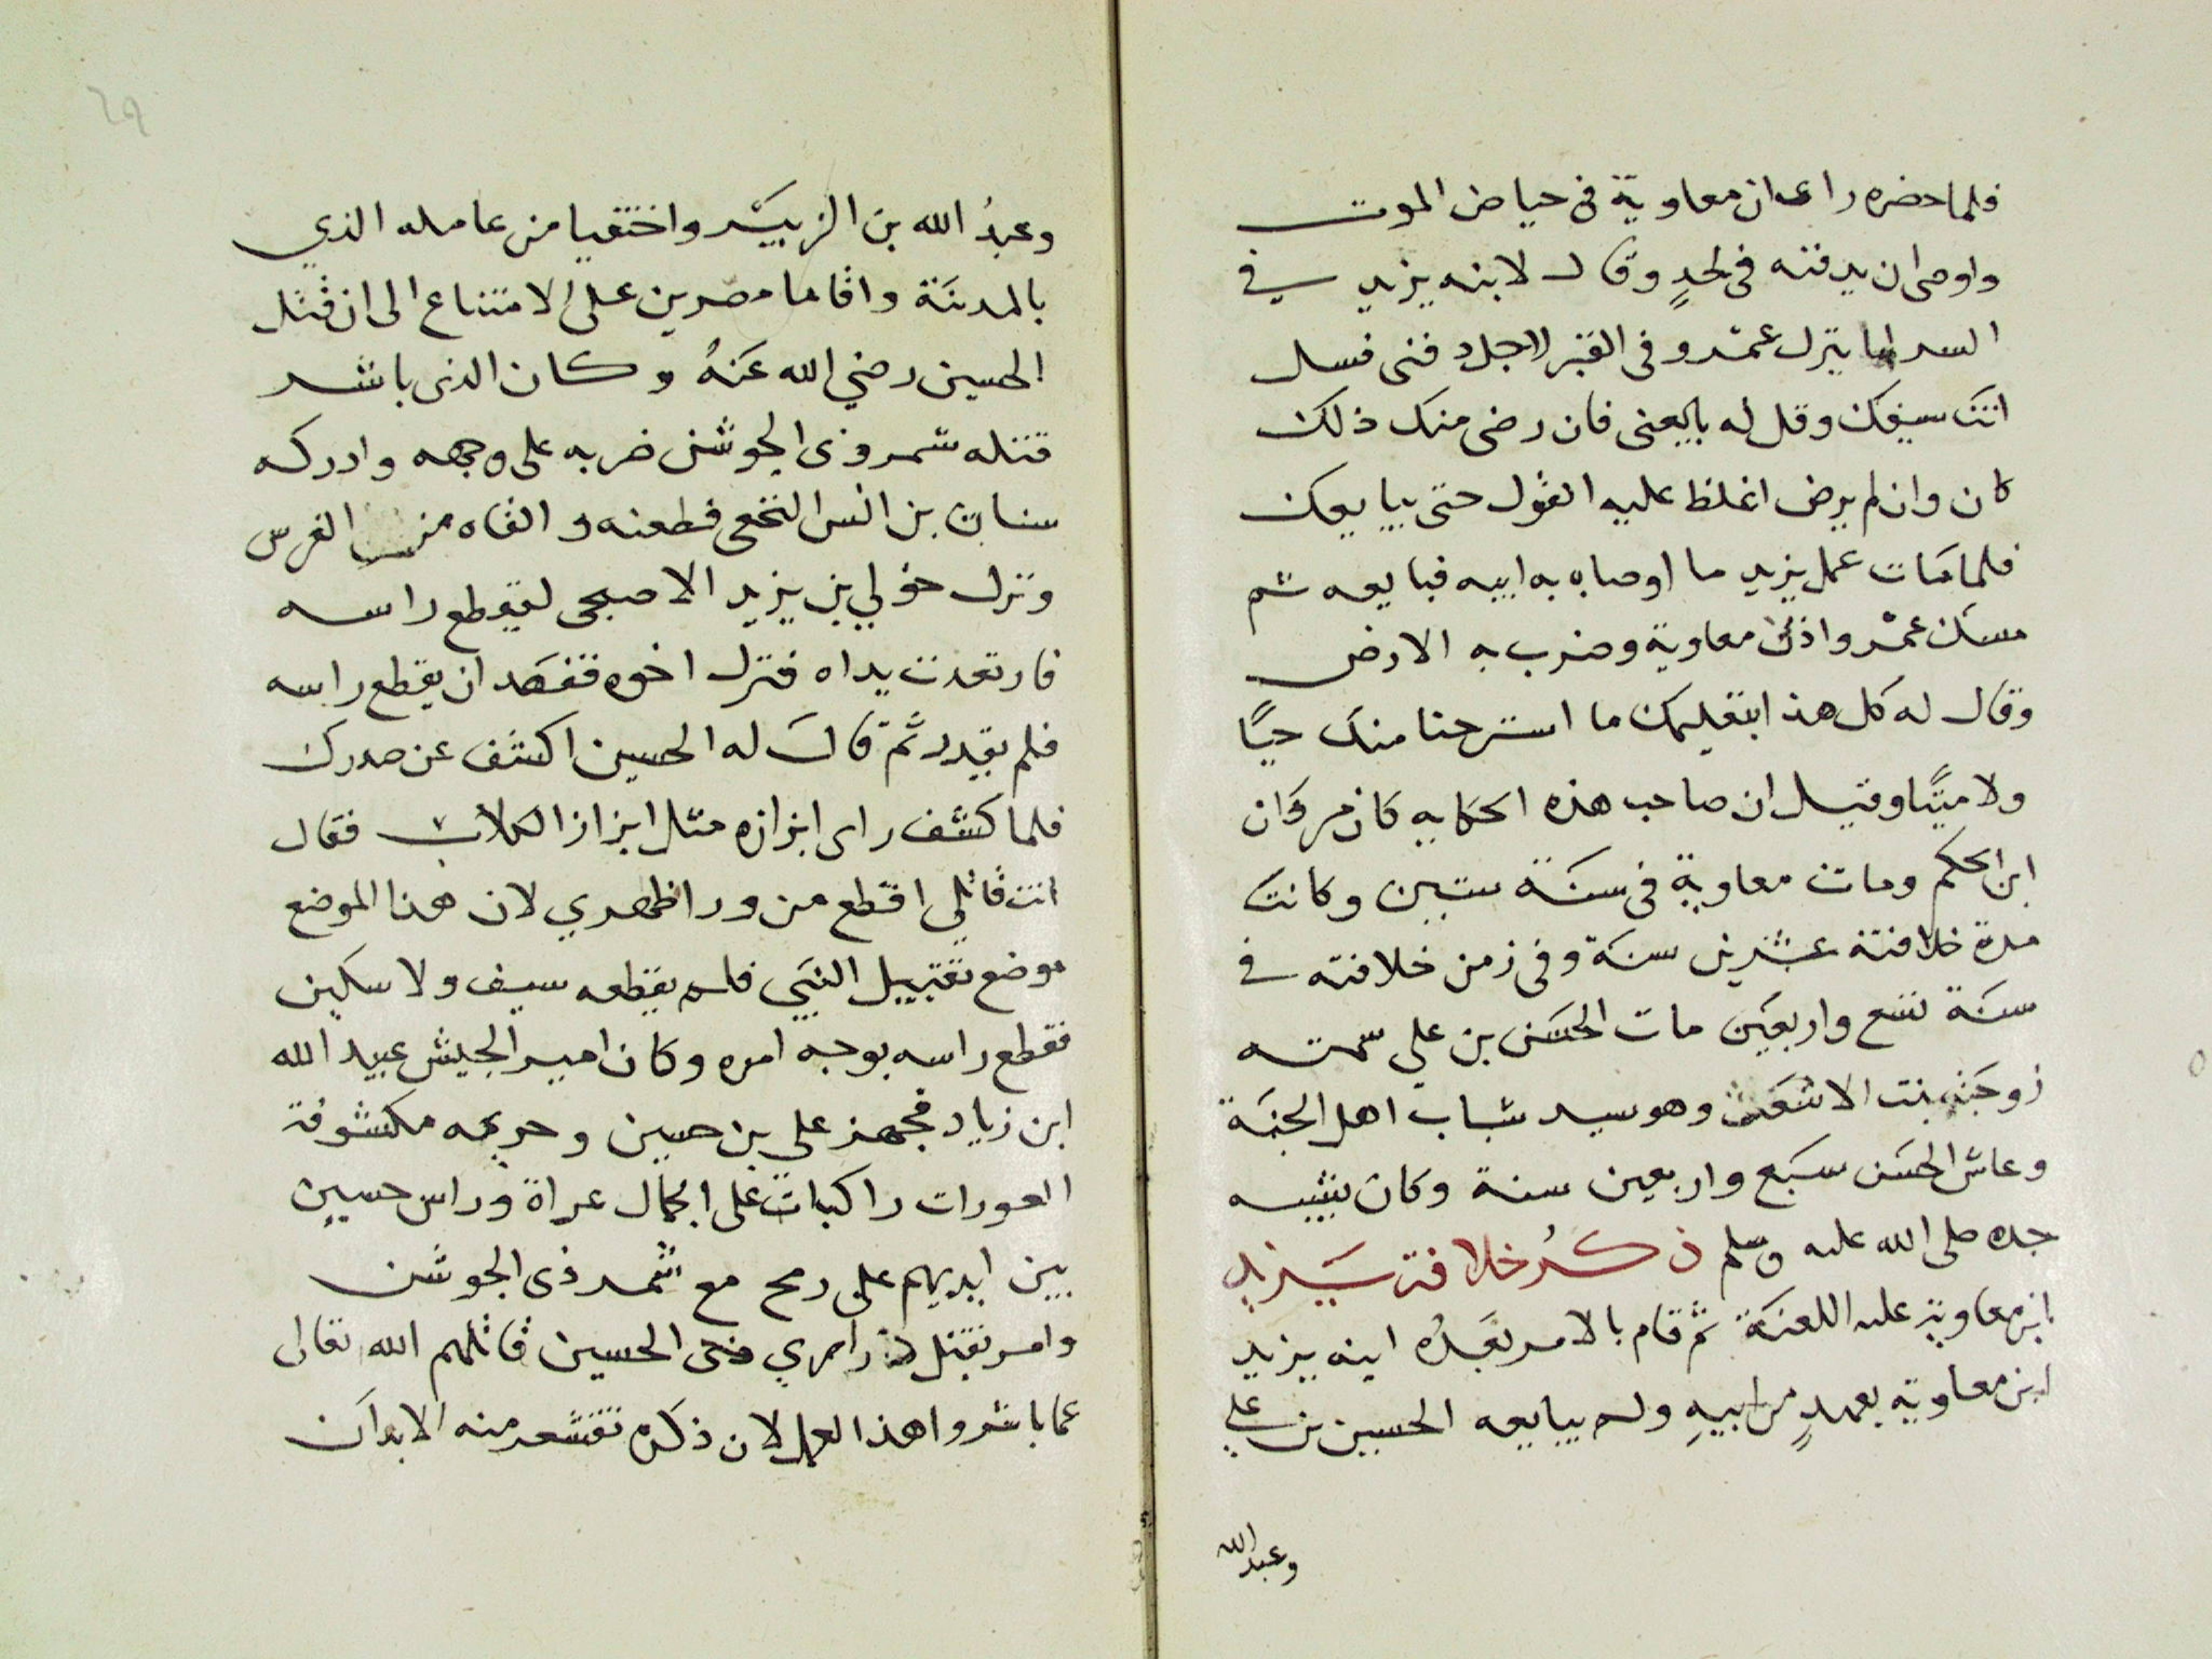 فلما حضره راى ان معاوية في حياض الموت
واوصى ان يدفنه في لحدٍ وقال لابنه يزيد في
السر لما ينزل عمرو في القبر لاجل دفني فسل
انت سيفك وقل له بايعني فان رضى منك ذلك
كان وان لم يرض اغلظ عليه القول حتى يبايعك
فلما مات عمل يزيد ما اوصاه به ابيه فبايعه ثم
مسك عمرو اذن معاوية وضرب به الارض
وقال له كل هذا بتعليمك ما استرحنا منك حيًّا
ولا ميتًا وقيل ان صاحب هذه الحكايه كان مروان
ابن الحكم ومات معاوية في سنة ستين وكانت
مدة خلافته عشرين سنة وفي زمن خلافته في
سنة تسع واربعين مات الحسن بن علي سمته
زوجته بنت الاشعث وهو سيد شباب اهل الجنة
وعاش الحسن سبع واربعين سنة وكان يشبه
جده صلى الله عليه وسلم ذكرُ خلافة يزيد
ابن معاوية عليه اللعنة ثم قام بالامر بعدُه ابنه يزيد
ابن معاوية بعهدٍ من ابيهِ ولم يبايعه الحسين بن علي
وعبد الله
٦٩
وعبدُ الله بن الزبير واختفيا من عامله الذي
بالمدينة واقاما مصرين على الامتناع الى ان قتل
الحسين رضي الله عنهُ وكان الذى باشر
قتله شمر وذى الجوشن ضربه على وجهه وادركه
سنان بن انس النخعى فطعنه والقاه من الفرس
ونزل خولي بن يزيد الاصبحى ليقطع راسه
فارتعدت يداه فنزل اخوه فقصد ان يقطع راسه
فلم يقدر ثم قال له الحسين اكشف عن صدرك
فلما كشف راى ابزازه مثل ابزاز الكلاب فقال
انت قاتلي اقطع من ورا ظهري لان هذا الموضع
موضع تقبيل النبي فلم يقطعه سيف ولا سكين
فقطع راسه بوجه امره وكان امير الجيش عبيد الله
ابن زياد فجهز على بن حسين وحريمه مكشوفة
العورات راكبات على الجمال عراة وراس حسين
بين ايديهم على رمح مع شمر ذى الجوشن
وامر بقتل ذراري الحسين قاتلهم الله تعالى
عما باشروا هذا العمل لان ذكره تقشعر منه الابدان